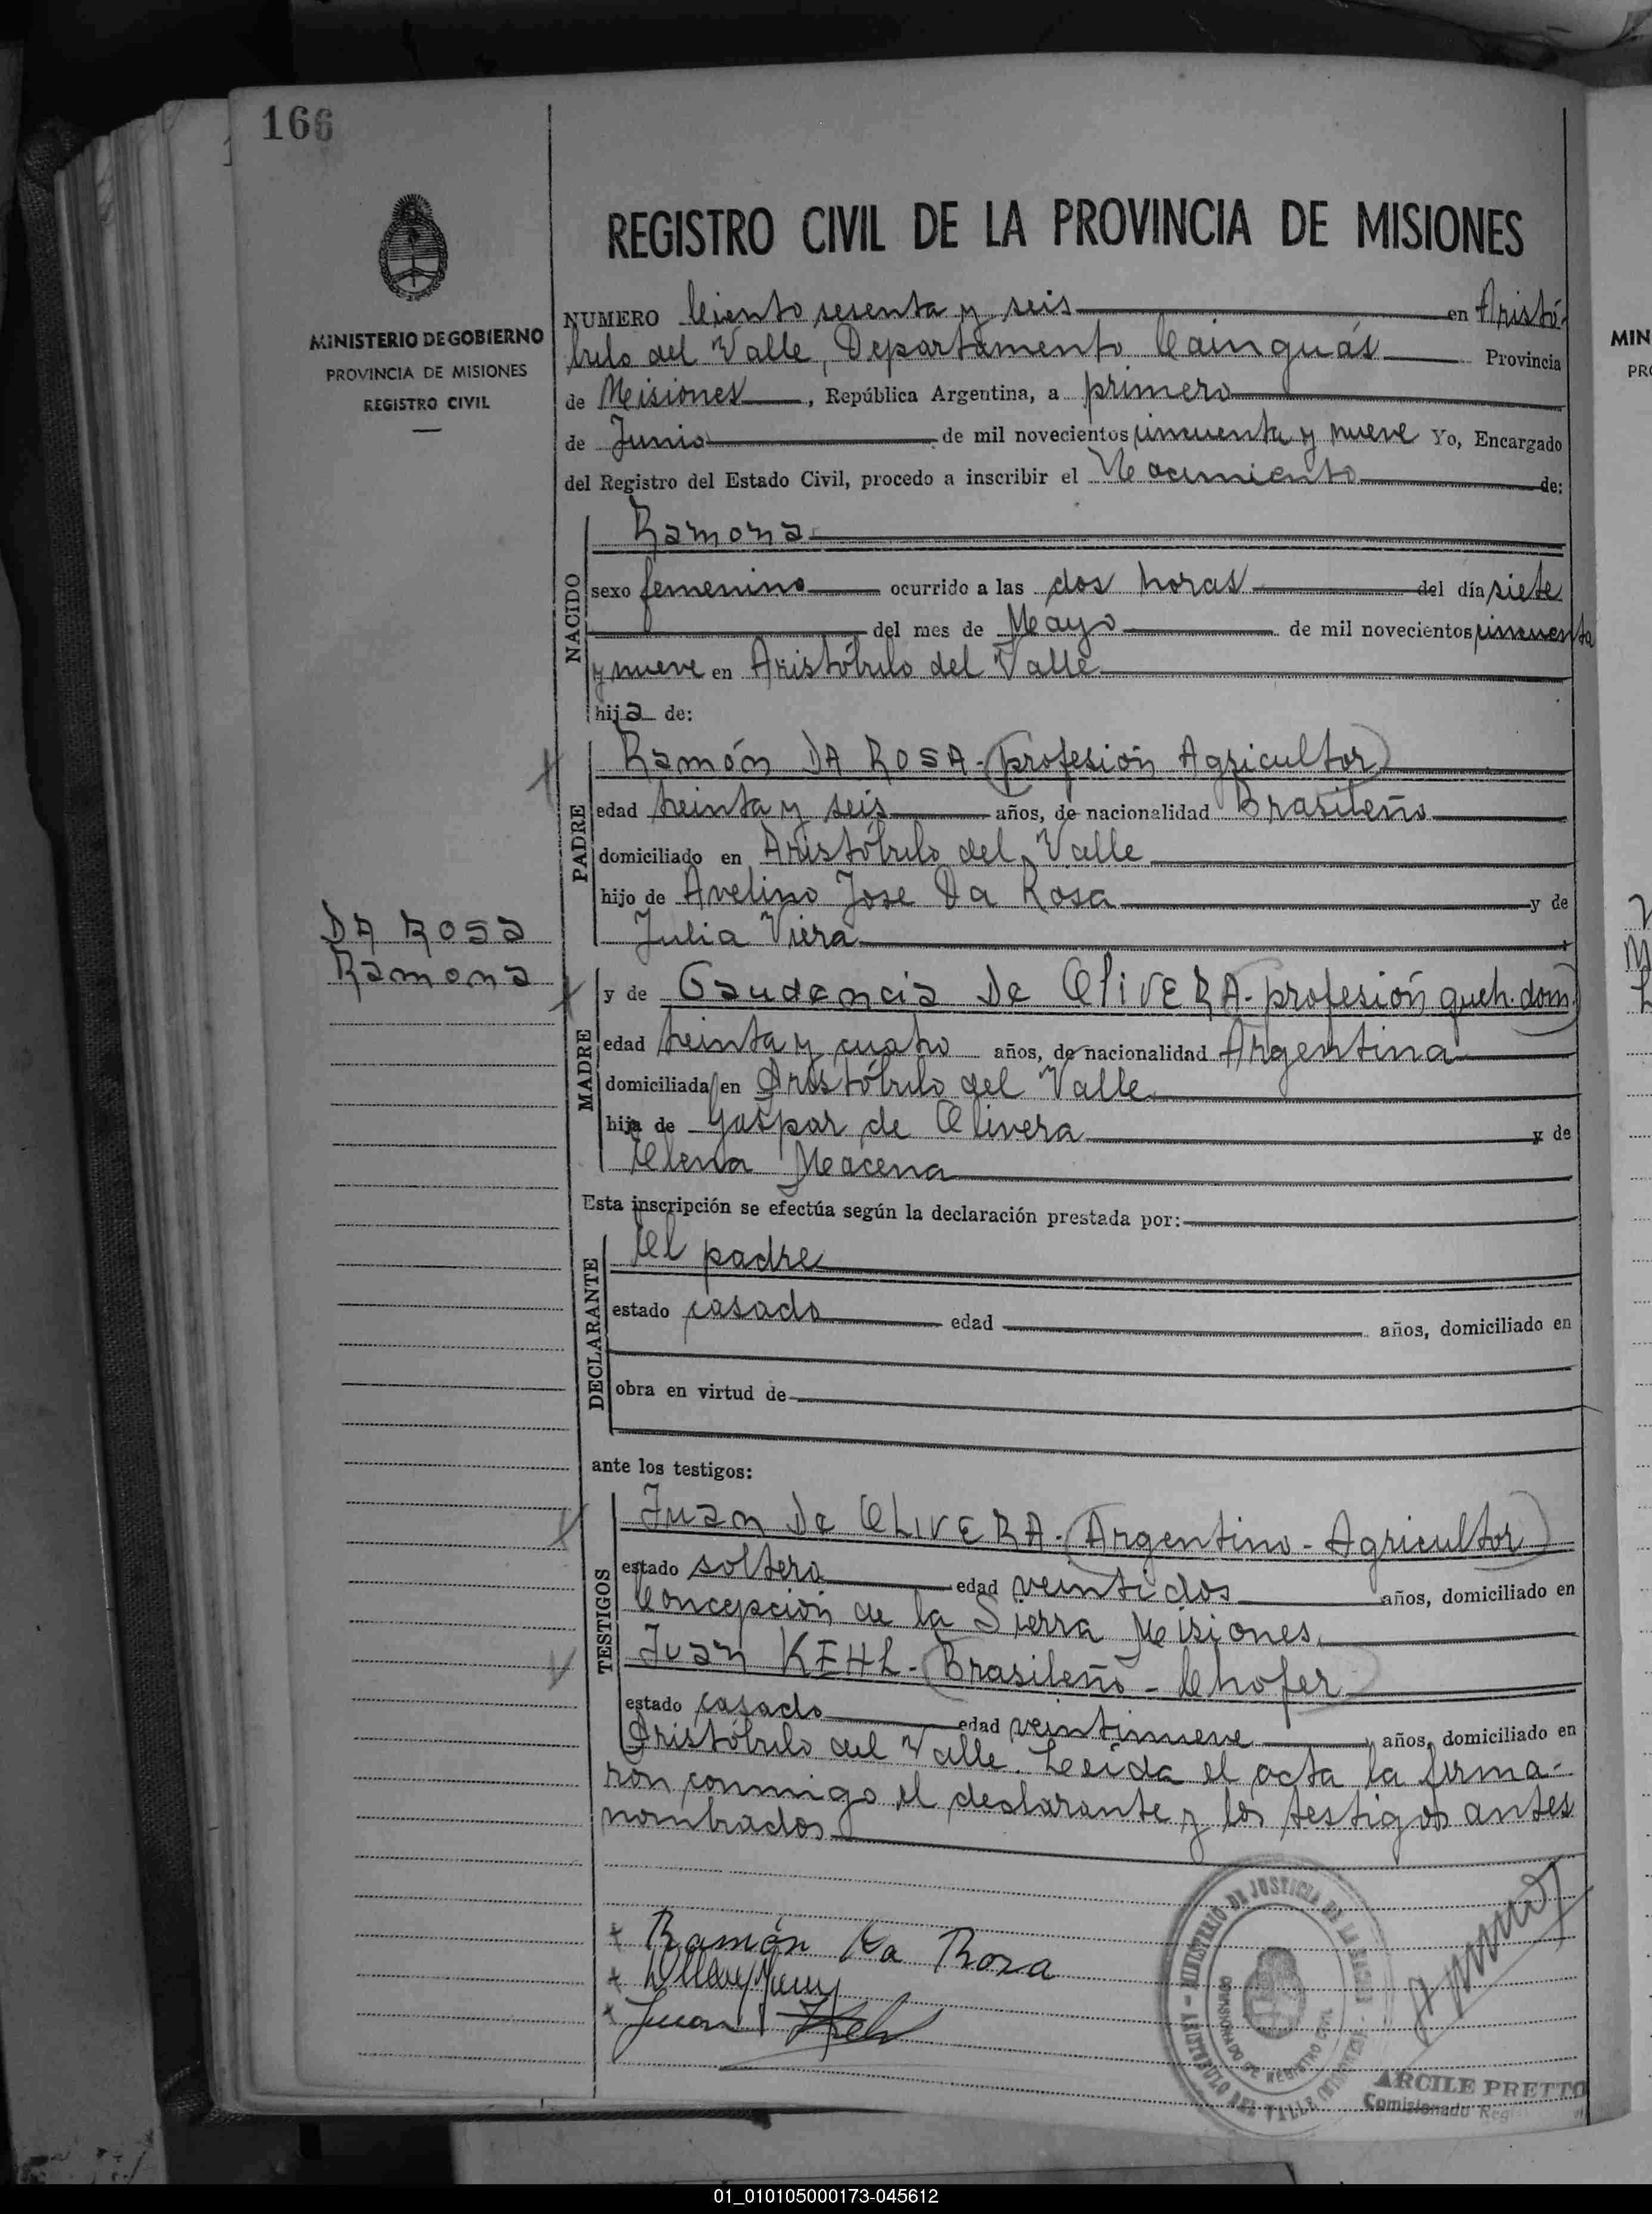 166
REGISTRO CIVIL DE LA PROVINCIA DE MISIONES
MINISTERIO DE GOBIERNO
PROVINCIA DE MISIONES
REGISTRO CIVIL
NUMERO Ciento sesenta y seis en Aristó-
bulo del Valle, Departamento Cainguás Provincia
de Misiones, República Argentina, a primero
de Junio de mil novecientos cincuenta y nueve Yo, Encargado
del Registro del Estado Civil, procedo a inscribir el Nacimiento de:
NACIDO
Ramona
sexo femenino ocurrido a las dos horas del día siete
del mes de Mayo de mil novecientos cincuenta
y nueve en Aristóbulo del Valle
hija de:
PADRE
Ramón DA ROSA - (profesión Agricultor)
edad treinta y seis años, de nacionalidad Brasileño
domiciliado en Aristóbulo del Valle
hijo de Avelino Jose Da Rosa y de
Julia Viera
DA ROSA
Ramona
MADRE
y de Gaudencia De OliVERA - profesión queh. dom.)
edad treinta y cuatro años, de nacionalidad Argentina
domiciliada en Aristóbulo del Valle
hija de Gaspar de Olivera y de
Elena Macena
Esta inscripción se efectúa según la declaración prestada por:
DECLARANTE
El padre
estado casado edad años, domiciliado en
obra en virtud de
ante los testigos:
TESTIGOS
Juan De OLIVERA - (Argentino - Agricultor)
estado soltero edad veintidos años, domiciliado en
Concepción de la Sierra Misiones
Juan KEHL - (Brasileño - Chofer
estado casado edad veintinueve años, domiciliado en
Aristóbulo del Valle. Leída el acta la firma-
ron conmigo el declarante y los testigos antes
nombrados
Ramón Da Roza
Juan
MINISTERIO DE JUSTICIA DE LA
COMISIONADO DE REGISTRO CIVIL
ARISTOBULO DEL VALLE
ARCILE PRETTO
Comisionado
MIN
01_010105000173-045612